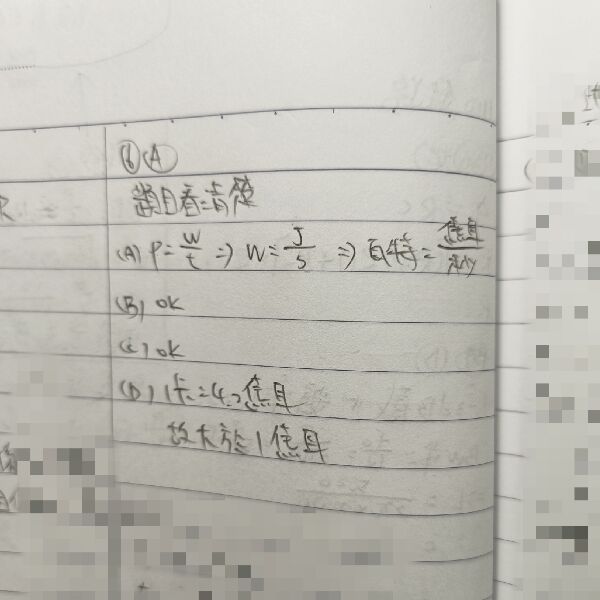 ⑥(A)
題目看清楚
(A) P=W/t ⇒ W=J/s ⇒ 瓦特=焦耳/秒
(B) ok
(C) ok
(D) 1卡=4.2焦耳
故大於1焦耳